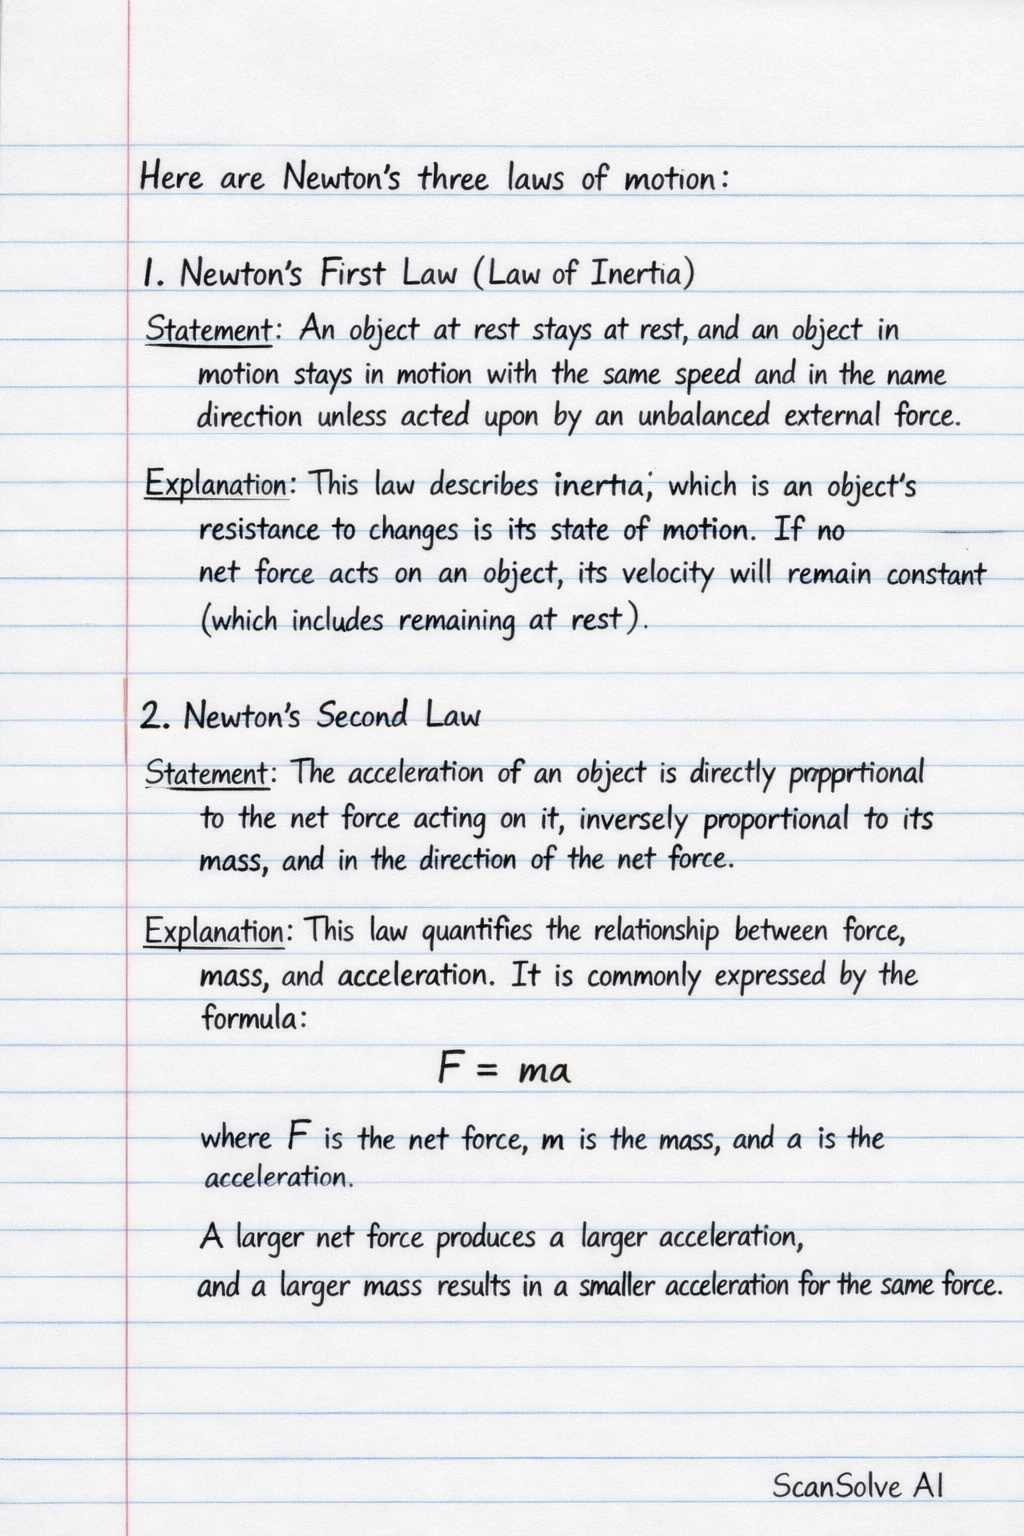 Here are Newton's three laws of motion:
1. Newton's First Law (Law of Inertia)
Statement: An object at rest stays at rest, and an object in
motion stays in motion with the same speed and in the name
direction unless acted upon by an unbalanced external force.
Explanation: This law describes inertia; which is an object's
resistance to changes is its state of motion. If no
net force acts on an object, its velocity will remain constant
(which includes remaining at rest).
2. Newton's Second Law
Statement: The acceleration of an object is directly propprtional
to the net force acting on it, inversely proportional to its
mass, and in the direction of the net force.
Explanation: This law quantifies the relationship between force,
mass, and acceleration. It is commonly expressed by the
formula:
F = ma
where F is the net force, m is the mass, and a is the
acceleration.
A larger net force produces a larger acceleration,
and a larger mass results in a smaller acceleration for the same force.
ScanSolve AI